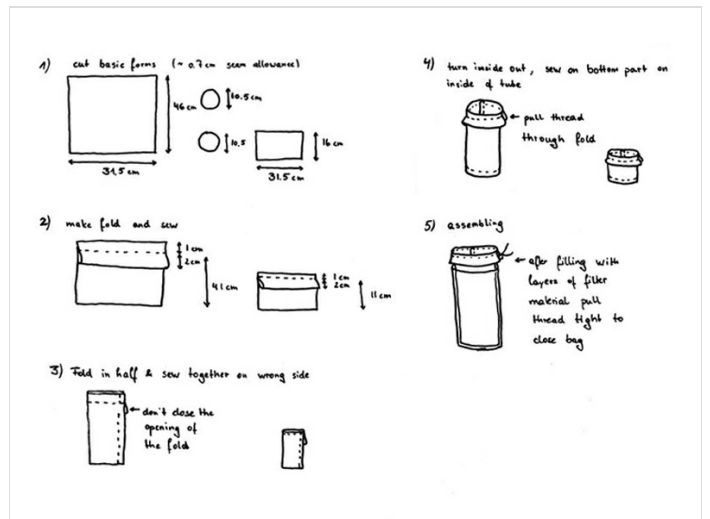 1) cut basic forms (~ 0.7cm seam allowance)
46cm
10.5cm
10.5
16cm
31.5cm
31.5cm
2) make fold and sew
1cm
2cm
41cm
1cm
2cm
11cm
3) Fold in half & sew together on wrong side
← don't close the
opening of
the fold
4) turn inside out, sew on bottom part on
inside of tube
← pull thread
through fold
5) assembling
← after filling with
layers of filter
material pull
thread tight to
close bag